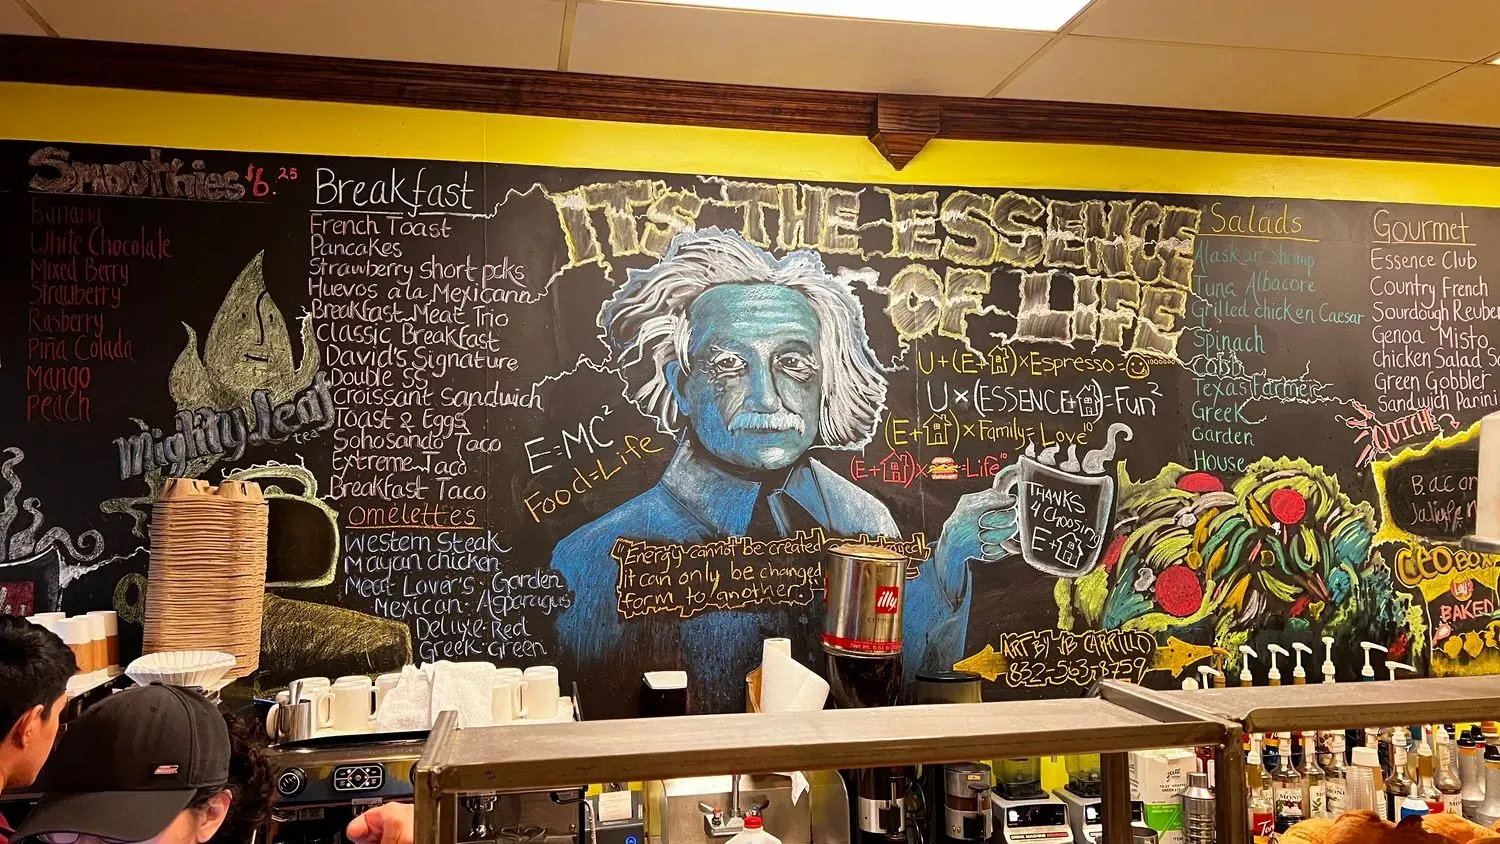 Smoothies $6.25
Banana
White Chocolate
Mixed Berry
Strawberry
Rasberry
Piña Colada
Mango
Peach
Mighty Leaf
tea
Breakfast
French Toast
Pancakes
Strawberry short pcks
Huevos a la Mexicana
Breakfast Meat Trio
Classic Breakfast
David's Signature
Double SS
Croissant Sandwich
Toast & Eggs
Sohosando Taco
Extreme Taco
Breakfast Taco
Omelettes
Western Steak
Mayan chicken
Meat Lover's - Garden
Mexican - Asparagus
Deluxe - Red
Greek - Green
IT'S THE ESSENCE
OF LIFE
E=MC²
Food=Life
U+(E+)×Espresso=
U×(ESSENCE+)=Fun²
(E+)×Family=Love¹⁰
(E+)×=Life¹⁰
THANKS
4 Choosing
E+
"Energy cannot be created
it can only be changed
form to another."
illy
ESPRESSO
ART BY JB CARRILLO
832-563-8759
Salads
Alaskan Shrimp
Tuna Albacore
Grilled chicken Caesar
Spinach
Cobb
Texas Farmer
Greek
Garden
House
Gourmet
Essence Club
Country French
Sourdough Reuben
Genoa Misto
chicken Salad
Green Gobbler
Sandwich Panini
QUICHE
Bacon
CEO BOX
Lay's
BAKED